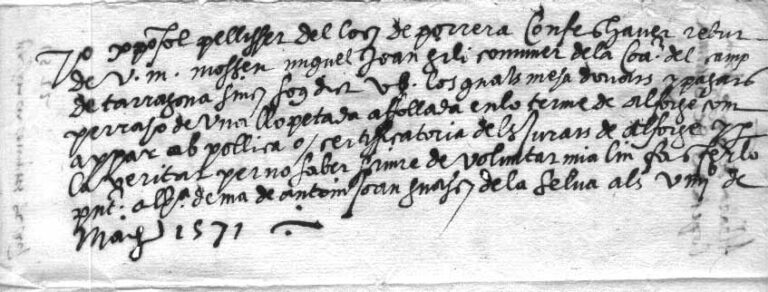 Yo xpofol pellisser del loch de porrera Confes haver rebut
de v. m. mossen miquel Joan gili comuner dela Coa. del camp
de tarragona sinch sous dich v ss. los quals mesa donats y pagats
per raho de una llopetada affollada enlo terme de alforge com
appar ab pollica o certificatoria dels Jurats de alforge y per
la veritat per no saber scriure de voluntat mia lin fas fer lo
pnt. alb.a de ma de antoni Joan de la selva als de
Maig 1571